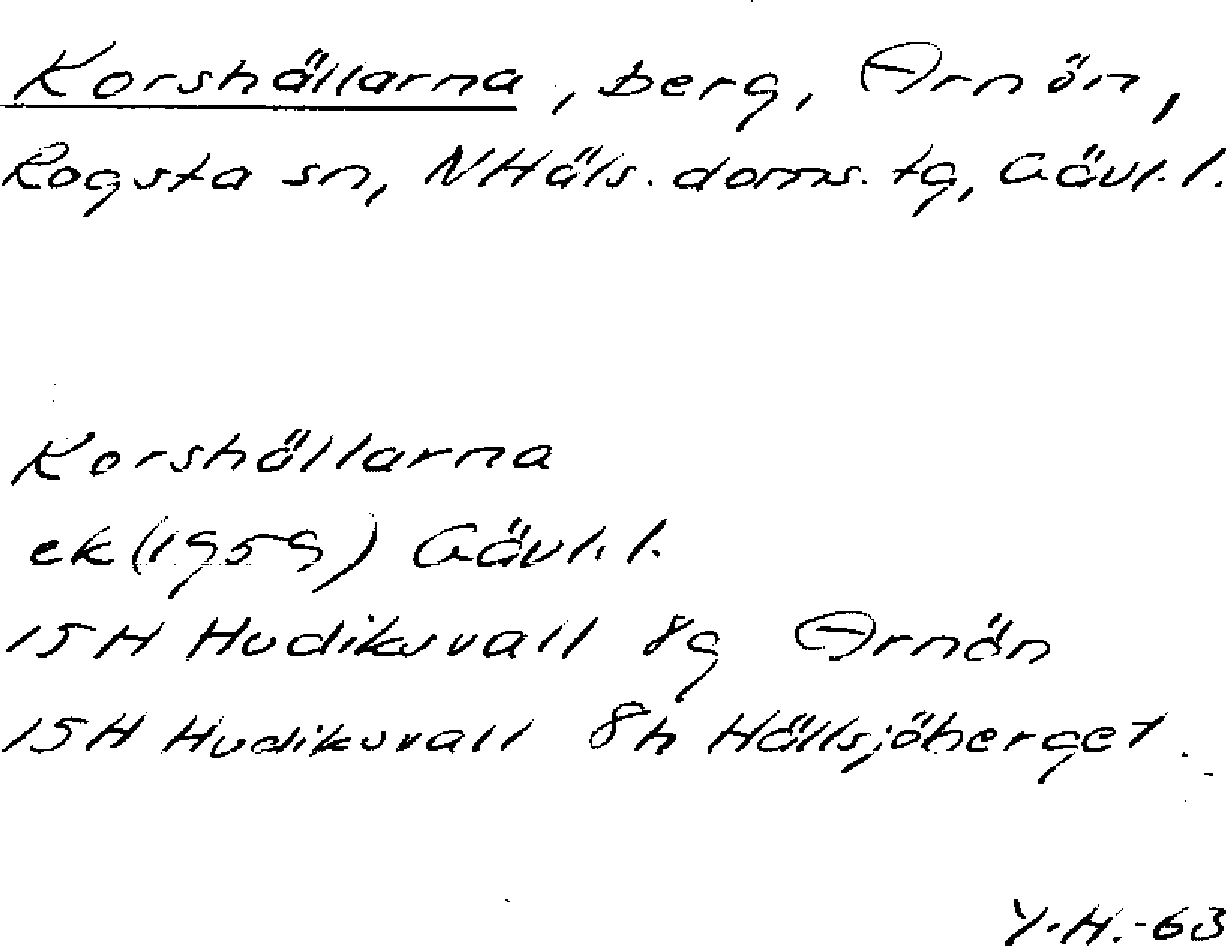 Korshällarna, berg, Arnön,
Rogsta sn, NHäls. doms. tg, Gävl. l.
Korshällarna
ek (1959) Gävl. l.
15H Hudiksvall 8g Arnön
15H Hudiksvall 8h Hällsjöberget.
Y.H.-63